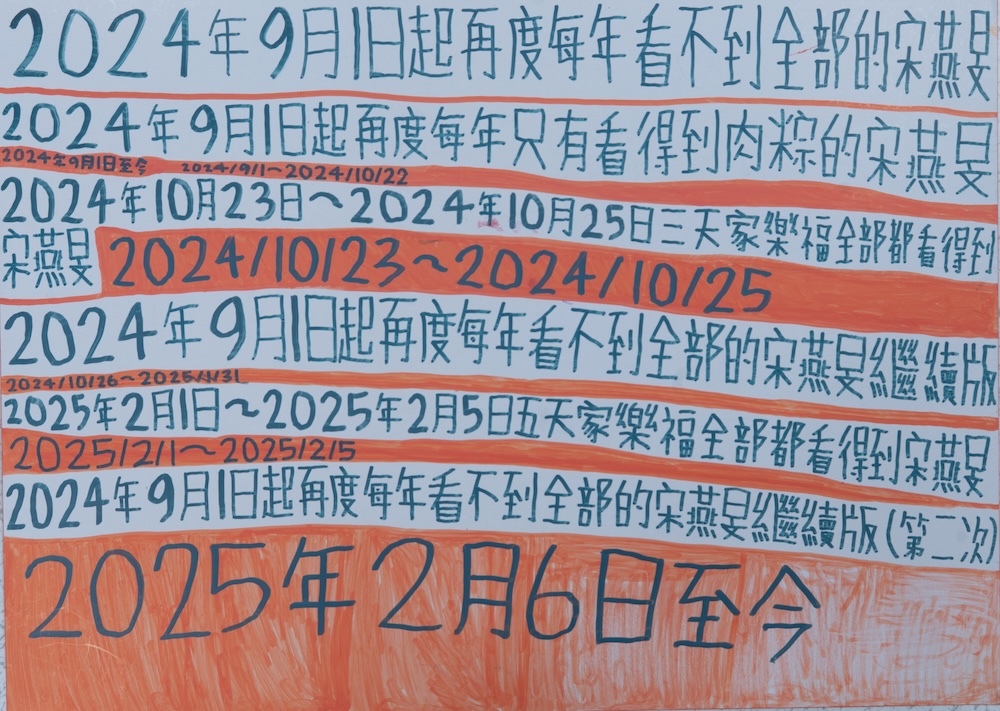 2024年9月1日起再度每年看不到全部的宋燕旻
2024年9月1日起再度每年只有看得到肉粽的宋燕旻
2024年9月1日至今 2024/9/1~2024/10/22
2024年10月23日~2024年10月25日三天家樂福全部都看得到
宋燕旻 2024/10/23~2024/10/25
2024年9月1日起再度每年看不到全部的宋燕旻繼續版
2024/10/26~2025/1/31
2025年2月1日~2025年2月5日五天家樂福全部都看得到宋燕旻
2025/2/1~2025/2/5
2024年9月1日起再度每年看不到全部的宋燕旻繼續版(第二次)
2025年2月6日至今